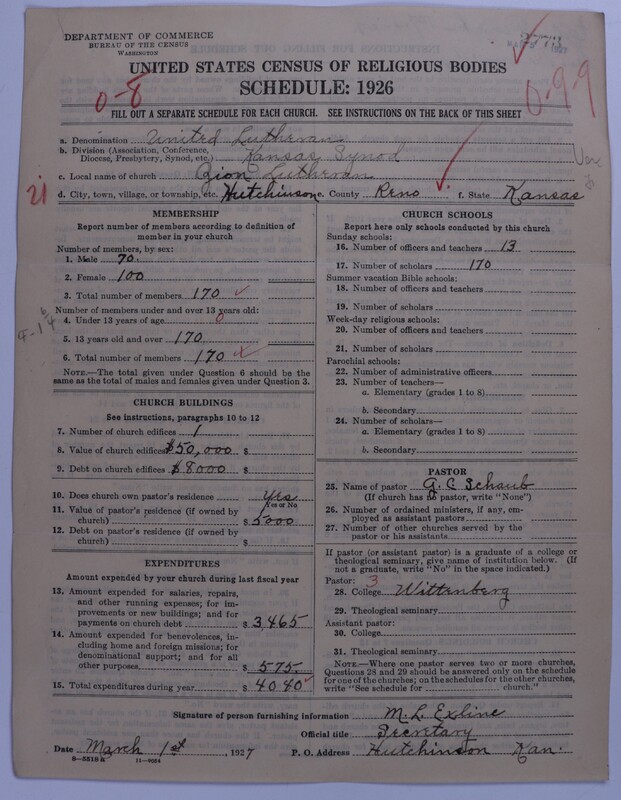 DEPARTMENT OF COMMERCE
BUREAU OF THE CENSUS
WASHINGTON
UNITED STATES CENSUS OF RELIGIOUS BODIES
SCHEDULE: 1926
0-8
0-9-9
FILL OUT A SEPARATE SCHEDULE FOR EACH CHURCH. SEE INSTRUCTIONS ON THE BACK OF THIS SHEET
a. Denomination United Lutheran
b. Division (Association, Conference, Diocese, Presbytery, Synod, etc.) Kansas Synod
c. Local name of church Zion Lutheran
21 d. City, town, village, or township, etc. Hutchinson e. County Reno f. State Kansas
MEMBERSHIP
Report number of members according to definition of member in your church
Number of members, by sex:
1. Male 70.
2. Female 100
3. Total number of members 170
Number of members under and over 13 years old:
4. Under 13 years of age 0
5. 13 years old and over 170
6. Total number of members 170
NOTE.—The total given under Question 6 should be the same as the total of males and females given under Question 3.
CHURCH BUILDINGS
See instructions, paragraphs 10 to 12
7. Number of church edifices 1
8. Value of church edifices $50,000 $
9. Debt on church edifices $8000 $
10. Does church own pastor's residence Yes
Yes or No
11. Value of pastor's residence (if owned by church) $ 5000
12. Debt on pastor's residence (if owned by church) $
EXPENDITURES
Amount expended by your church during last fiscal year
13. Amount expended for salaries, repairs, and other running expenses; for improvements or new buildings; and for payments on church debt $ 3,465
14. Amount expended for benevolences, including home and foreign missions; for denominational support; and for all other purposes $ 575
15. Total expenditures during year $ 4040
CHURCH SCHOOLS
Report here only schools conducted by this church
Sunday schools:
16. Number of officers and teachers 13
17. Number of scholars 170
Summer vacation Bible schools:
18. Number of officers and teachers
19. Number of scholars
Week-day religious schools:
20. Number of officers and teachers
21. Number of scholars
Parochial schools:
22. Number of administrative officers
23. Number of teachers—
a. Elementary (grades 1 to 8)
b. Secondary
24. Number of scholars—
a. Elementary (grades 1 to 8)
b. Secondary
PASTOR
25. Name of pastor G. C Schaub
(If church has no pastor, write "None")
26. Number of ordained ministers, if any, employed as assistant pastors
27. Number of other churches served by the pastor or his assistants
If pastor (or assistant pastor) is a graduate of a college or theological seminary, give name of institution below. (If not a graduate, write "No" in the space indicated.)
Pastor: 3
28. College Wittenberg
29. Theological seminary
Assistant pastor:
30. College
31. Theological seminary
NOTE.—Where one pastor serves two or more churches, Questions 28 and 29 should be answered only on the schedule for one of the churches; on the schedules for the other churches, write "See schedule for church."
Signature of person furnishing information M. L. Exline
Official title Secretary
Date March 1st, 1927 P. O. Address Hutchinson Kan.
8-5518a 11-9034